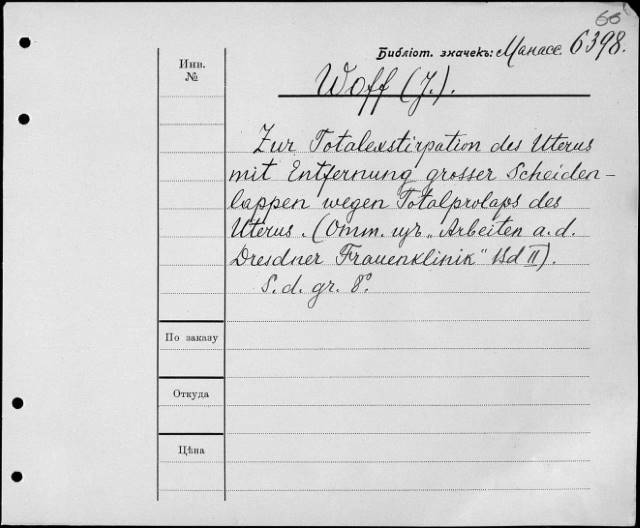 66
Библіот. значекъ: Манасс. 6398.
Инв.
№
Woff (J.).
Zur Totalexstirpation des Uterus
mit Entfernung grosser Scheiden-
lappen wegen Totalprolaps des
Uterus. (Отт. изъ „Arbeiten a. d.
Dresdner Frauenklinik" Bd II).
S. d. gr. 8°.
По заказу
Откуда
Цѣна